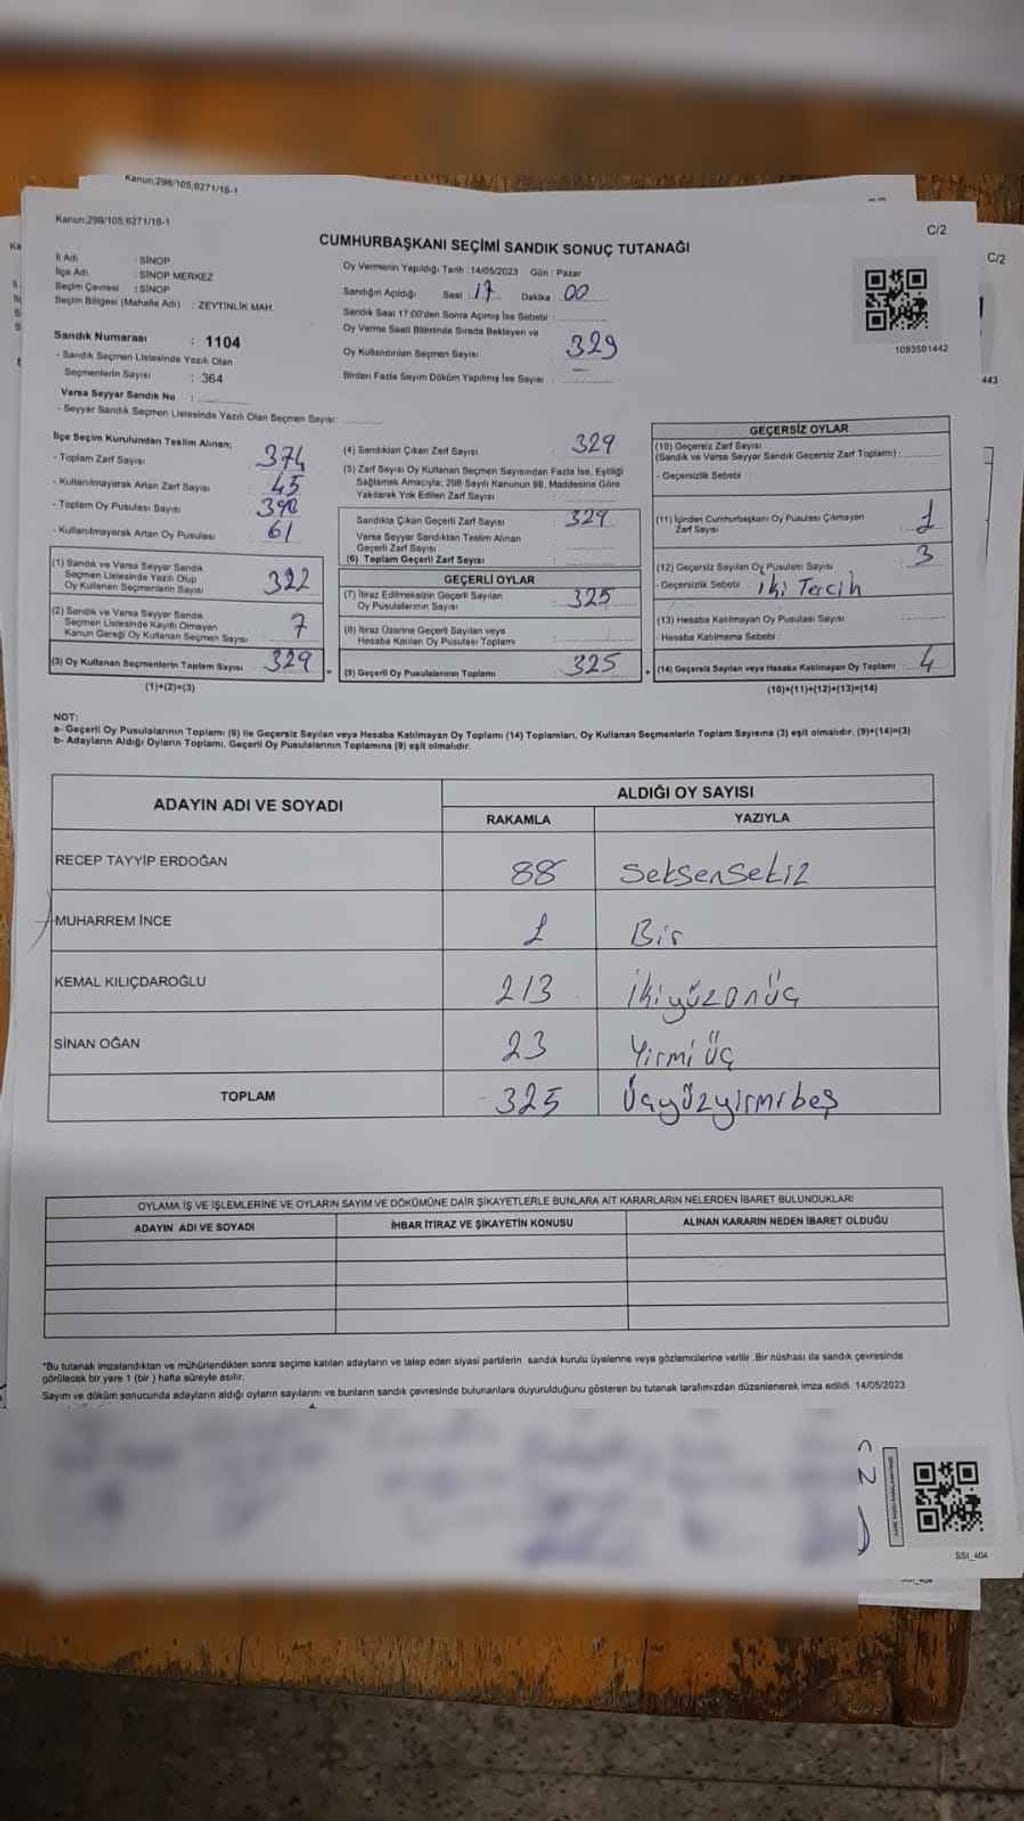 Kanun;298/105;6271/18-1
Kanun;298/105;6271/18-1
C/2
C/2
CUMHURBAŞKANI SEÇİMİ SANDIK SONUÇ TUTANAĞI
İl Adı : SİNOP
İlçe Adı : SİNOP MERKEZ
Seçim Çevresi : SİNOP
Seçim Bölgesi (Mahalle Adı) : ZEYTİNLİK MAH.
Sandık Numarası : 1104
- Sandık Seçmen Listesinde Yazılı Olan
Seçmenlerin Sayısı : 364
Varsa Seyyar Sandık No :
- Seyyar Sandık Seçmen Listesinde Yazılı Olan Seçmen Sayısı:
Oy Vermenin Yapıldığı Tarih : 14/05/2023 Gün : Pazar
Sandığın Açıldığı Saat : 17 Dakika : 00
Sandık Saat 17:00'den Sonra Açılmış İse Sebebi :
Oy Verme Saati Bitiminde Sırada Bekleyen ve
Oy Kullandırılan Seçmen Sayısı 329
Birden Fazla Sayım Döküm Yapılmış İse Sayısı :
1093501442
443
İlçe Seçim Kurulundan Teslim Alınan;
- Toplam Zarf Sayısı 374
- Kullanılmayarak Artan Zarf Sayısı 45
- Toplam Oy Pusulası Sayısı 390
- Kullanılmayarak Artan Oy Pusulası 61
(1) Sandık ve Varsa Seyyar Sandık
Seçmen Listesinde Yazılı Olup
Oy Kullanan Seçmenlerin Sayısı 322
(2) Sandık ve Varsa Seyyar Sandık
Seçmen Listesinde Kayıtlı Olmayan
Kanun Gereği Oy Kullanan Seçmen Sayısı 7
(3) Oy Kullanan Seçmenlerin Toplam Sayısı 329
(1)+(2)=(3)
(4) Sandıktan Çıkan Zarf Sayısı : 329
(5) Zarf Sayısı Oy Kullanan Seçmen Sayısından Fazla İse, Eşitliği
Sağlamak Amacıyla; 298 Sayılı Kanunun 98. Maddesine Göre
Yakılarak Yok Edilen Zarf Sayısı :
Sandıkta Çıkan Geçerli Zarf Sayısı : 329
Varsa Seyyar Sandıktan Teslim Alınan
Geçerli Zarf Sayısı
(6) Toplam Geçerli Zarf Sayısı :
GEÇERLİ OYLAR
(7) İtiraz Edilmeksizin Geçerli Sayılan
Oy Pusulalarının Sayısı : 325
(8) İtiraz Üzerine Geçerli Sayılan veya
Hesaba Katılan Oy Pusulası Toplamı
(9) Geçerli Oy Pusulalarının Toplamı : 325
GEÇERSİZ OYLAR
(10) Geçersiz Zarf Sayısı
(Sandık ve Varsa Seyyar Sandık Geçersiz Zarf Toplamı) :
- Geçersizlik Sebebi :
(11) İçinden Cumhurbaşkanı Oy Pusulası Çıkmayan
Zarf Sayısı : 1
(12) Geçersiz Sayılan Oy Pusulası Sayısı : 3
- Geçersizlik Sebebi iki Tercih
(13) Hesaba Katılmayan Oy Pusulası Sayısı
- Hesaba Katılmama Sebebi :
(14) Geçersiz Sayılan veya Hesaba Katılmayan Oy Toplamı : 4
(10)+(11)+(12)+(13)=(14)
NOT:
a- Geçerli Oy Pusulalarının Toplamı (9) ile Geçersiz Sayılan veya Hesaba Katılmayan Oy Toplamı (14) Toplamları, Oy Kullanan Seçmenlerin Toplam Sayısına (3) eşit olmalıdır. (9)+(14)=(3)
b- Adayların Aldığı Oyların Toplamı, Geçerli Oy Pusulalarının Toplamına (9) eşit olmalıdır.
ADAYIN ADI VE SOYADI ALDIĞI OY SAYISI
RAKAMLA YAZIYLA
RECEP TAYYİP ERDOĞAN 88 Seksensekiz
MUHARREM İNCE 1 Bir
KEMAL KILIÇDAROĞLU 213 ikiyüzonüç
SİNAN OĞAN 23 Yirmi üç
TOPLAM 325 Üçyüzyirmibeş
OYLAMA İŞ VE İŞLEMLERİNE VE OYLARIN SAYIM VE DÖKÜMÜNE DAİR ŞİKAYETLERLE BUNLARA AİT KARARLARIN NELERDEN İBARET BULUNDUKLARI
ADAYIN ADI VE SOYADI İHBAR İTİRAZ VE ŞİKAYETİN KONUSU ALINAN KARARIN NEDEN İBARET OLDUĞU
*Bu tutanak imzalandıktan ve mühürlendikten sonra seçime katılan adayların ve talep eden siyasi partilerin sandık kurulu üyelerine veya gözlemcilerine verilir. Bir nüshası da sandık çevresinde
görülecek bir yere 1 (bir ) hafta süreyle asılır.
Sayım ve döküm sonucunda adayların aldığı oyların sayılarını ve bunların sandık çevresinde bulunanlara duyurulduğunu gösteren bu tutanak tarafımızdan düzenlenerek imza edildi. 14/05/2023
SSt_404